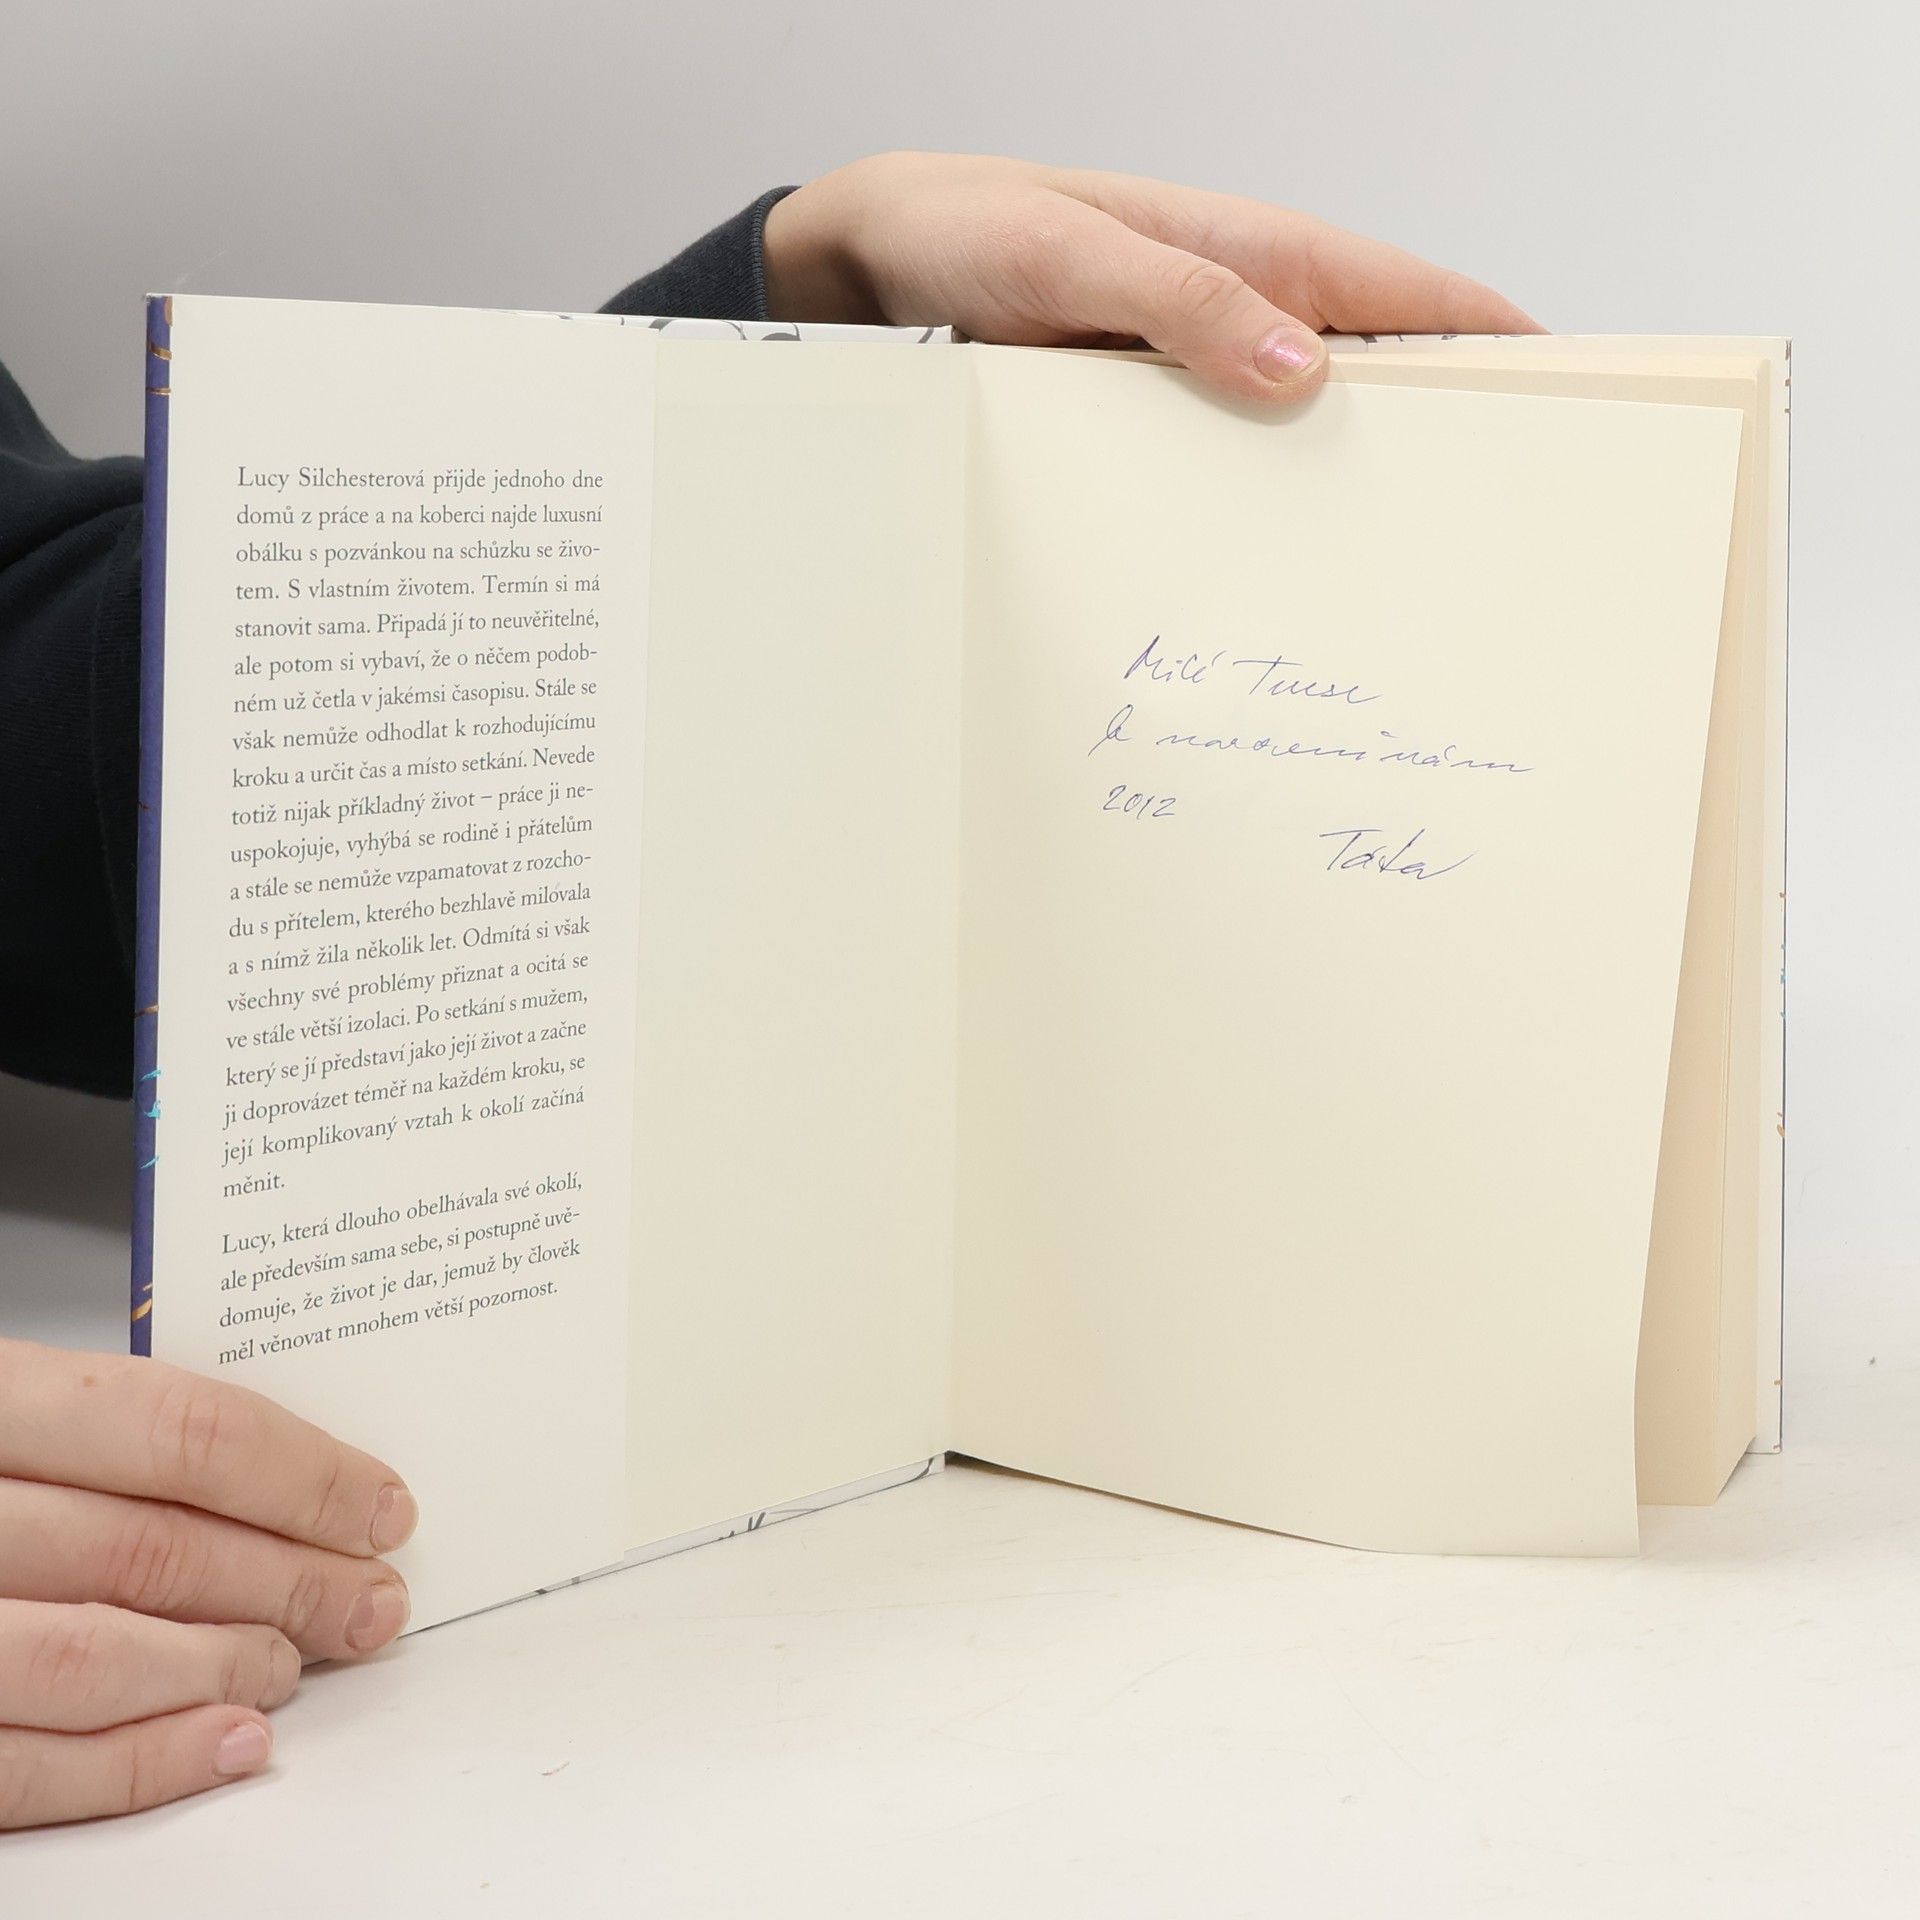 Lucy Silchesterová přijde jednoho dne
domů z práce a na koberci najde luxusní
obálku s pozvánkou na schůzku se živo-
tem. S vlastním životem. Termín si má
stanovit sama. Připadá jí to neuvěřitelné,
ale potom si vybaví, že o něčem podob-
ném už četla v jakémsi časopisu. Stále se
však nemůže odhodlat k rozhodujícímu
kroku a určit čas a místo setkání. Nevede
totiž nijak příkladný život – práce ji ne-
uspokojuje, vyhýbá se rodině i přátelům
a stále se nemůže vzpamatovat z rozcho-
du s přítelem, kterého bezhlavě milovala
a s nímž žila několik let. Odmítá si však
všechny své problémy přiznat a ocitá se
ve stále větší izolaci. Po setkání s mužem,
který se jí představí jako její život a začne
ji doprovázet téměř na každém kroku, se
její komplikovaný vztah k okolí začíná
měnit.
Lucy, která dlouho obelhávala své okolí,
ale především sama sebe, si postupně uvě-
domuje, že život je dar, jemuž by člověk
měl věnovat mnohem větší pozornost.
Milé
k narozeninám
2012
Táta